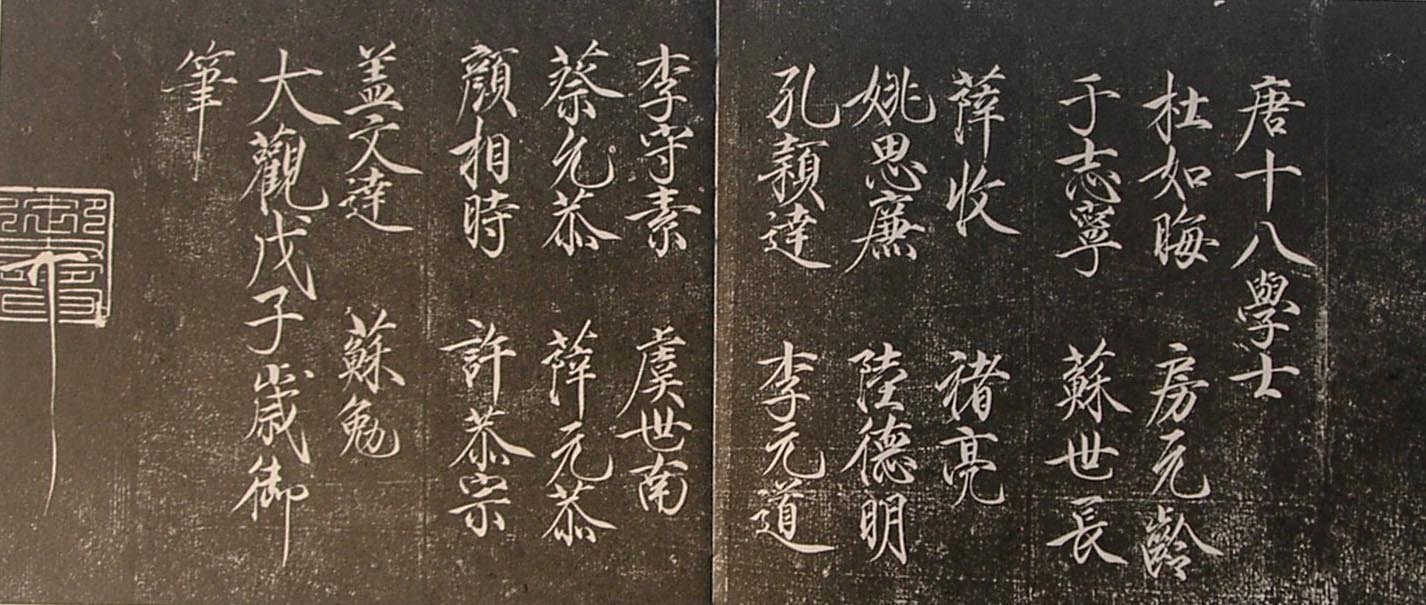 唐十八學士
杜如晦 房元齡
于志寧 蘇世長
薛收 褚亮
姚思廉 陸德明
孔穎達 李元道
李守素 虞世南
蔡允恭 薛元恭
顔相時 許恭宗
盖文達 蘇勉
大觀戊子歲御
筆